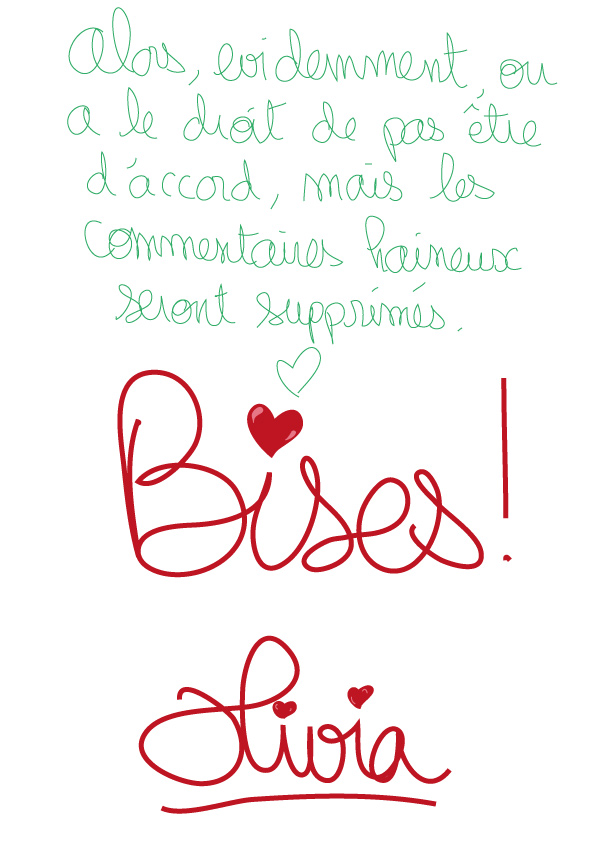 Alors, evidemment, ou
a le droit de pas être
d'accord, mais les
commentaires haineux
seront supprimés.
Bises!
Olivia